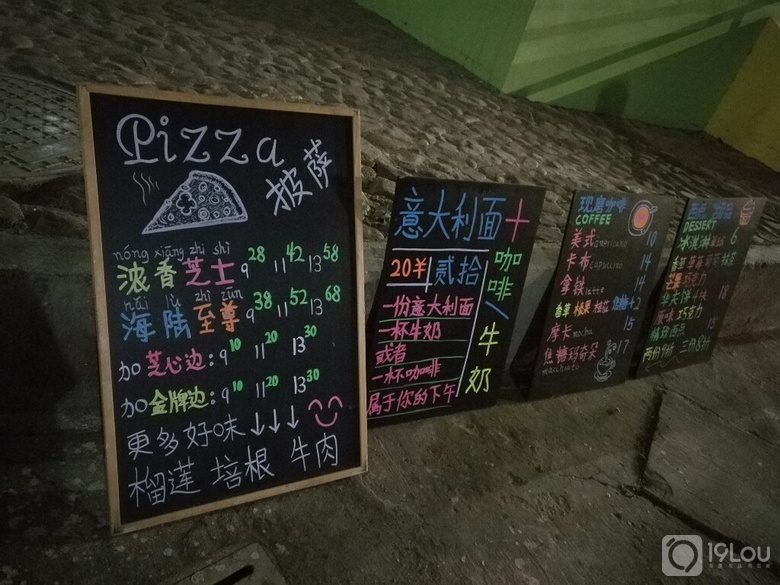 Pizza
披萨
nóng xiāng zhī shì
浓香芝士 9 28 11 42 13 58
hǎi lù zhì zūn
海陆至尊 9 38 11 52 13 68
加芝心边: 9 10 11 20 13 30
加金牌边: 9 10 11 20 13 30
更多好味↓↓↓
榴莲 培根 牛肉
意大利面+
咖啡/牛奶
20半 贰拾
一份意大利面
一杯牛奶
或者
一杯咖啡
属于你的下午
现磨咖啡
COFFEE
美式 americano 10
卡布 capuccino 14
拿铁 latte 14
香草 榛果 焦糖+2
摩卡 mocha 15
焦糖玛奇朵 17
macchiato
DESSERT
冰淇淋 6
香草 草莓
芒果 巧克力
华夫饼 4块 18
原味 巧克力
精致西点 15
两份9折 三份8折
19Lou